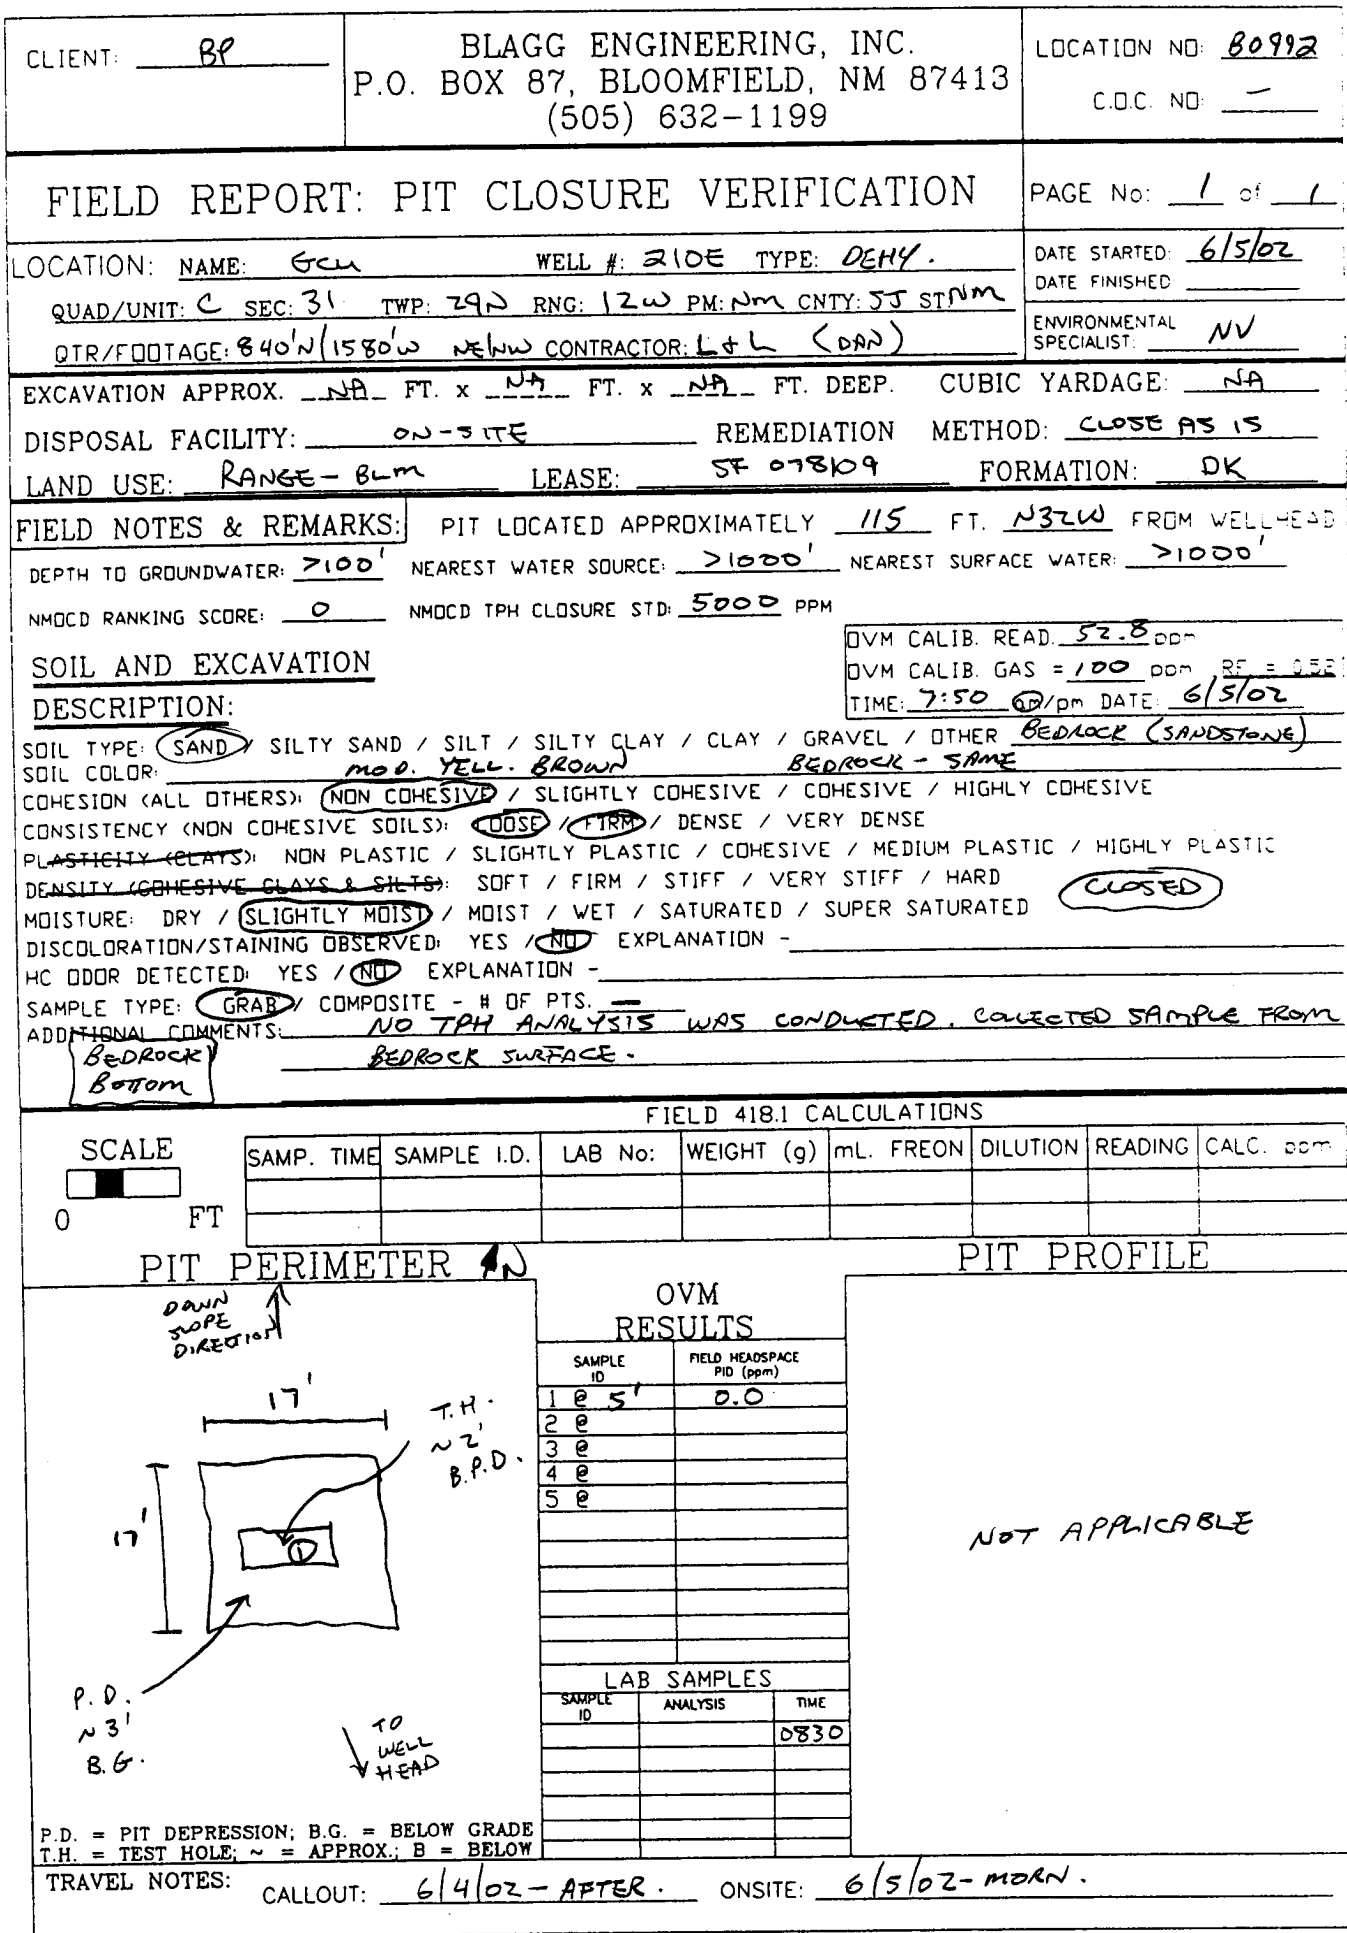 CLIENT: BP
BLAGG ENGINEERING, INC.
P.O. BOX 87, BLOOMFIELD, NM 87413
(505) 632-1199
LOCATION NO: B0992
C.O.C. NO: —
FIELD REPORT: PIT CLOSURE VERIFICATION
PAGE No: 1 of 1
LOCATION: NAME: GCU WELL #: 210E TYPE: DEHY.
QUAD/UNIT: C SEC: 31 TWP: 29N RNG: 12W PM: NM CNTY: SJ ST: NM
QTR/FOOTAGE: 840'N/1580'W NE/NW CONTRACTOR: L & L (DAN)
DATE STARTED: 6/5/02
DATE FINISHED
ENVIRONMENTAL SPECIALIST: NV
EXCAVATION APPROX. NA FT. x NA FT. x NA FT. DEEP. CUBIC YARDAGE: NA
DISPOSAL FACILITY: ON-SITE REMEDIATION METHOD: CLOSE AS IS
LAND USE: RANGE - BLM LEASE: SF 078109 FORMATION: DK
FIELD NOTES & REMARKS: PIT LOCATED APPROXIMATELY 115 FT. N32W FROM WELLHEAD
DEPTH TO GROUNDWATER: >100' NEAREST WATER SOURCE: >1000' NEAREST SURFACE WATER: >1000'
NMOCD RANKING SCORE: 0 NMOCD TPH CLOSURE STD: 5000 PPM
OVM CALIB. READ. 52.8 ppm
OVM CALIB. GAS = 100 ppm RF = 0.52
TIME: 7:50 am/pm DATE: 6/5/02
SOIL AND EXCAVATION
DESCRIPTION:
SOIL TYPE: SAND / SILTY SAND / SILT / SILTY CLAY / CLAY / GRAVEL / OTHER BEDROCK (SANDSTONE)
SOIL COLOR: MOD. YELL. BROWN BEDROCK - SAME
COHESION (ALL OTHERS): NON COHESIVE / SLIGHTLY COHESIVE / COHESIVE / HIGHLY COHESIVE
CONSISTENCY (NON COHESIVE SOILS): LOOSE / FIRM / DENSE / VERY DENSE
PLASTICITY (CLAYS): NON PLASTIC / SLIGHTLY PLASTIC / COHESIVE / MEDIUM PLASTIC / HIGHLY PLASTIC
DENSITY (COHESIVE CLAYS & SILTS): SOFT / FIRM / STIFF / VERY STIFF / HARD
CLOSED
MOISTURE: DRY / SLIGHTLY MOIST / MOIST / WET / SATURATED / SUPER SATURATED
DISCOLORATION/STAINING OBSERVED: YES / NO EXPLANATION -
HC ODOR DETECTED: YES / NO EXPLANATION -
SAMPLE TYPE: GRAB / COMPOSITE - # OF PTS. —
ADDITIONAL COMMENTS: NO TPH ANALYSIS WAS CONDUCTED. COLLECTED SAMPLE FROM
BEDROCK SURFACE.
BEDROCK
BOTTOM
FIELD 418.1 CALCULATIONS
SCALE
0 FT
SAMP. TIME SAMPLE I.D. LAB No: WEIGHT (g) mL. FREON DILUTION READING CALC. ppm
PIT PERIMETER N
PIT PROFILE
DOWN
SLOPE
DIRECTION
17'
T.H.
~ 2'
B.P.D.
17'
1
P.D.
~ 3'
B.G.
TO
WELL
HEAD
OVM
RESULTS
SAMPLE ID FIELD HEADSPACE PID (ppm)
1 @ 5' 0.0
2 @
3 @
4 @
5 @
LAB SAMPLES
SAMPLE ID ANALYSIS TIME
0830
NOT APPLICABLE
P.D. = PIT DEPRESSION; B.G. = BELOW GRADE
T.H. = TEST HOLE; ~ = APPROX.; B = BELOW
TRAVEL NOTES: CALLOUT: 6/4/02 - AFTER. ONSITE: 6/5/02 - MORN.